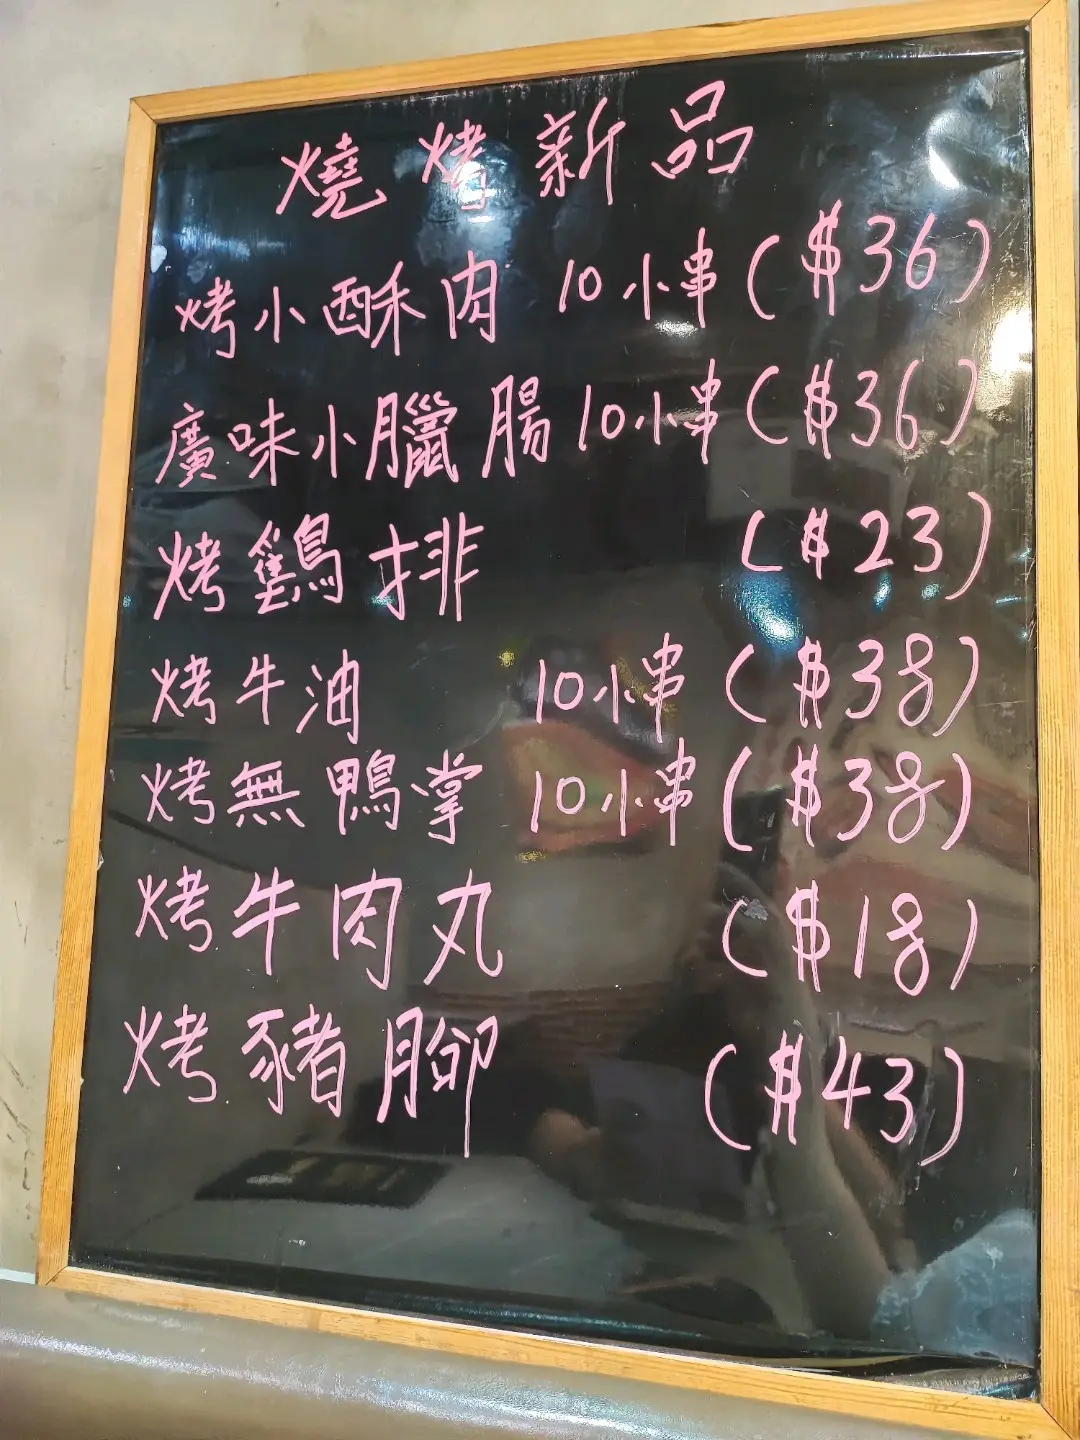 燒烤新品
烤小酥肉 10小串 ($36)
廣味小臘腸 10小串 ($36)
烤鷄排 ($23)
烤牛油 10小串 ($38)
烤無鴨掌 10小串 ($38)
烤牛肉丸 ($18)
烤豬腳 ($43)